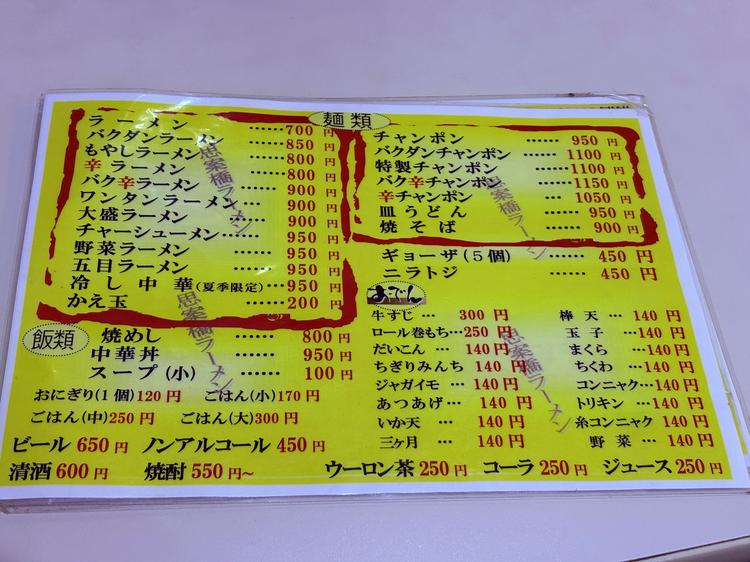 麺類
ラーメン ……700円
バクダンラーメン ……850円
もやしラーメン ……800円
辛ラーメン ……800円
バク辛ラーメン ……900円
ワンタンラーメン …900円
大盛ラーメン ……900円
チャーシューメン……950円
野菜ラーメン ……950円
五目ラーメン ……950円
冷し中華(夏季限定)…950円
かえ玉 ……200円
チャンポン ……950円
バクダンチャンポン …1100円
特製チャンポン ……1100円
バク辛チャンポン …1150円
辛チャンポン ……1050円
皿うどん ……950円
焼そば ……900円
ギョーザ(5個) ……450円
ニラトジ ……450円
おでん
牛すじ … 300円
ロール巻もち…250円
だいこん … 140円
ちぎりみんち 140円
ジャガイモ … 140円
あつあげ… 140円
いか天 … 140円
三ケ月 … 140円
棒天 … 140円
玉子 … 140円
まくら … 140円
ちくわ … 140円
コンニャク… 140円
トリキン … 140円
糸コンニャク 140円
野菜 … 140円
飯類
焼めし ……800円
中華丼 ……950円
スープ(小) ……100円
おにぎり(1個)120円 ごはん(小)170円
ごはん(中)250円 ごはん(大)300円
ビール 650円 ノンアルコール 450円
清酒600円 焼酎 550円~
ウーロン茶 250円 コーラ 250円 ジュース 250円
思案橋ラーメン
思案橋ラーメン
思案橋ラーメン
思案橋ラーメン